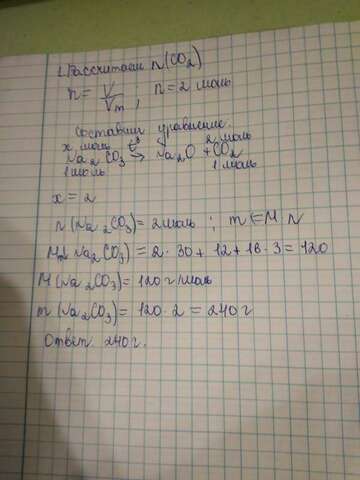 1. Рассчитаем n(CO₂)
n = V/Vm ; n = 2 моль
Составим уравнение:
x моль t° 2 моль
Na₂CO₃ → Na₂O + CO₂
1 моль 1 моль
x = 2
n(Na₂CO₃) = 2 моль ; m = M·n
Mr(Na₂CO₃) = 2·30 + 12 + 16·3 = 120
M(Na₂CO₃) = 120 г/моль
m(Na₂CO₃) = 120·2 = 240 г
Ответ 240 г.